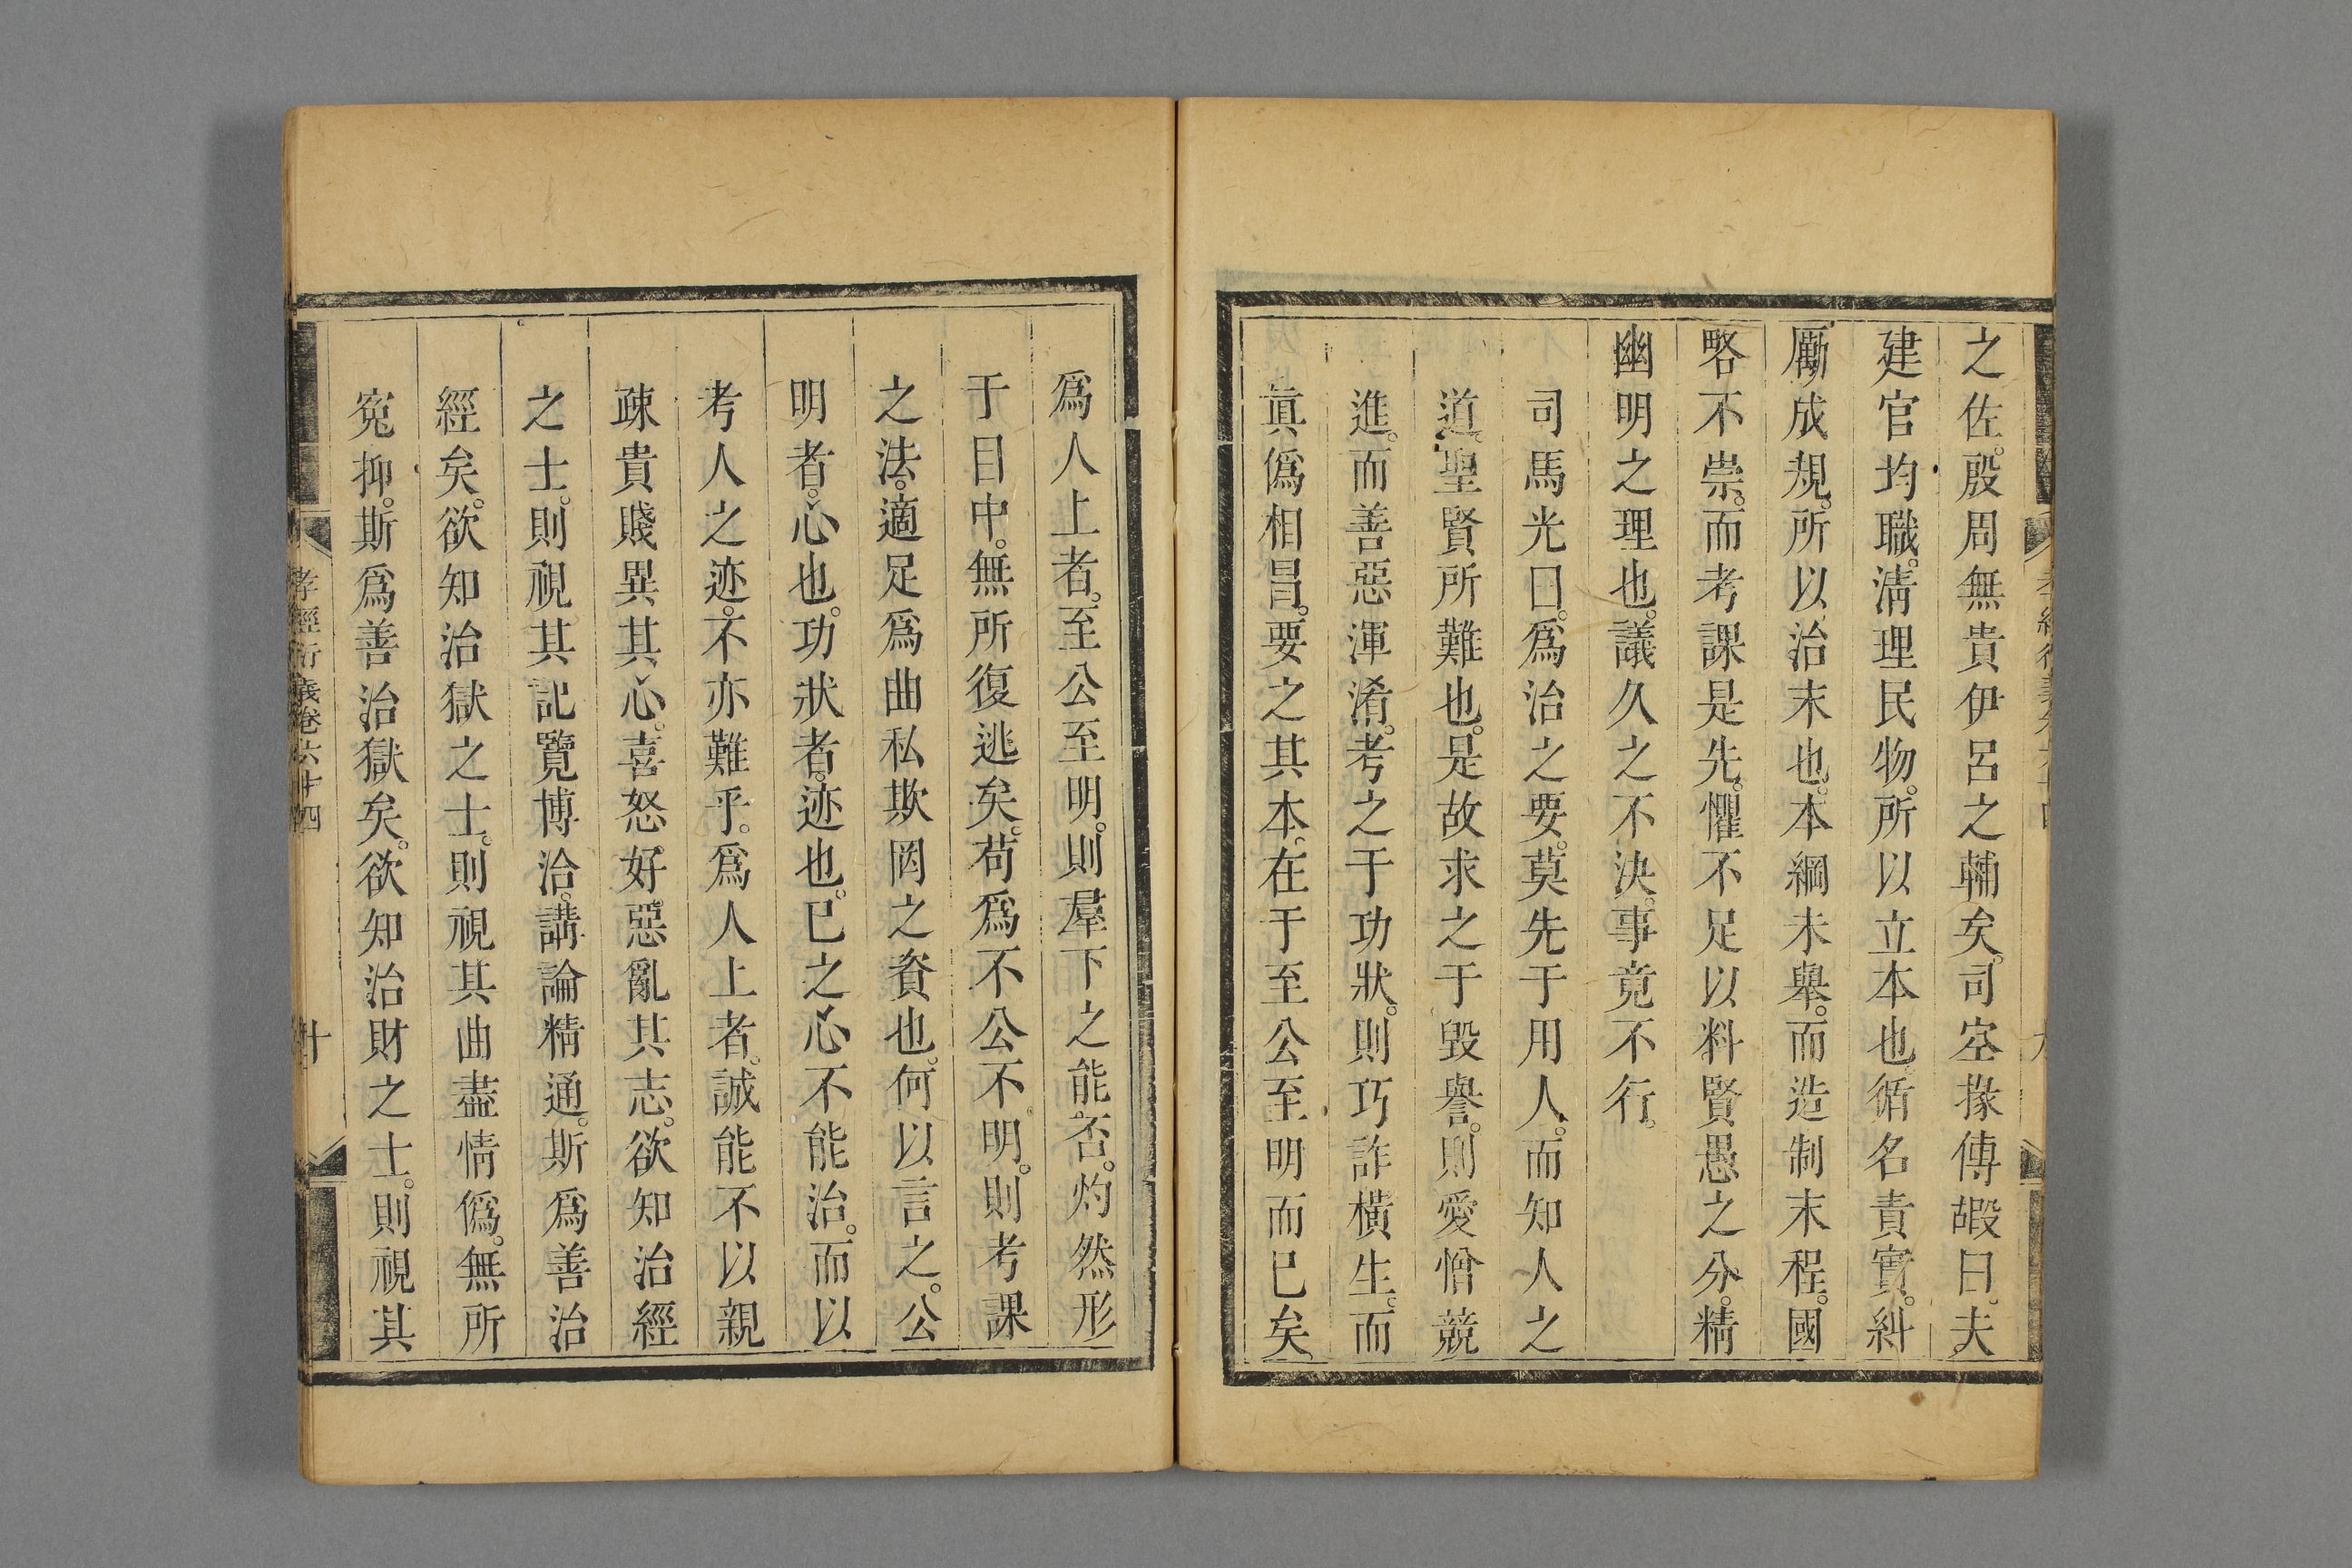 之佐。殷周無貴伊呂之輔矣。司空掾傅嘏曰。夫
建官均職。淸理民物。所以立本也。循名責實。糾
厲成規。所以治末也。本綱未舉。而造制末程。國
略不崇。而考課是先。懼不足以料賢愚之分。精
幽明之理也。議久之不決。事竟不行。
司馬光曰。爲治之要。莫先于用人。而知人之
道。聖賢所難也。是故求之于毀譽。則愛憎競
進。而善惡渾淆。考之于功狀。則巧詐橫生。而
眞僞相冒。要之其本。在于至公至明而已矣。
爲人上者。至公至明。則羣下之能否。灼然形
于目中。無所復逃矣。苟爲不公不明。則考課
之法。適足爲曲私欺罔之資也。何以言之。公
明者。心也。功狀者。迹也。已之心不能治。而以
考人之迹。不亦難乎。爲人上者。誠能不以親
疎貴賤異其心。喜怒好惡亂其志。欲知治經
之士。則視其記覽博洽。講論精通。斯爲善治
經矣。欲知治獄之士。則視其曲盡情僞。無所
寃抑。斯爲善治獄矣。欲知治財之士。則視其
孝經衍義卷六十四
十